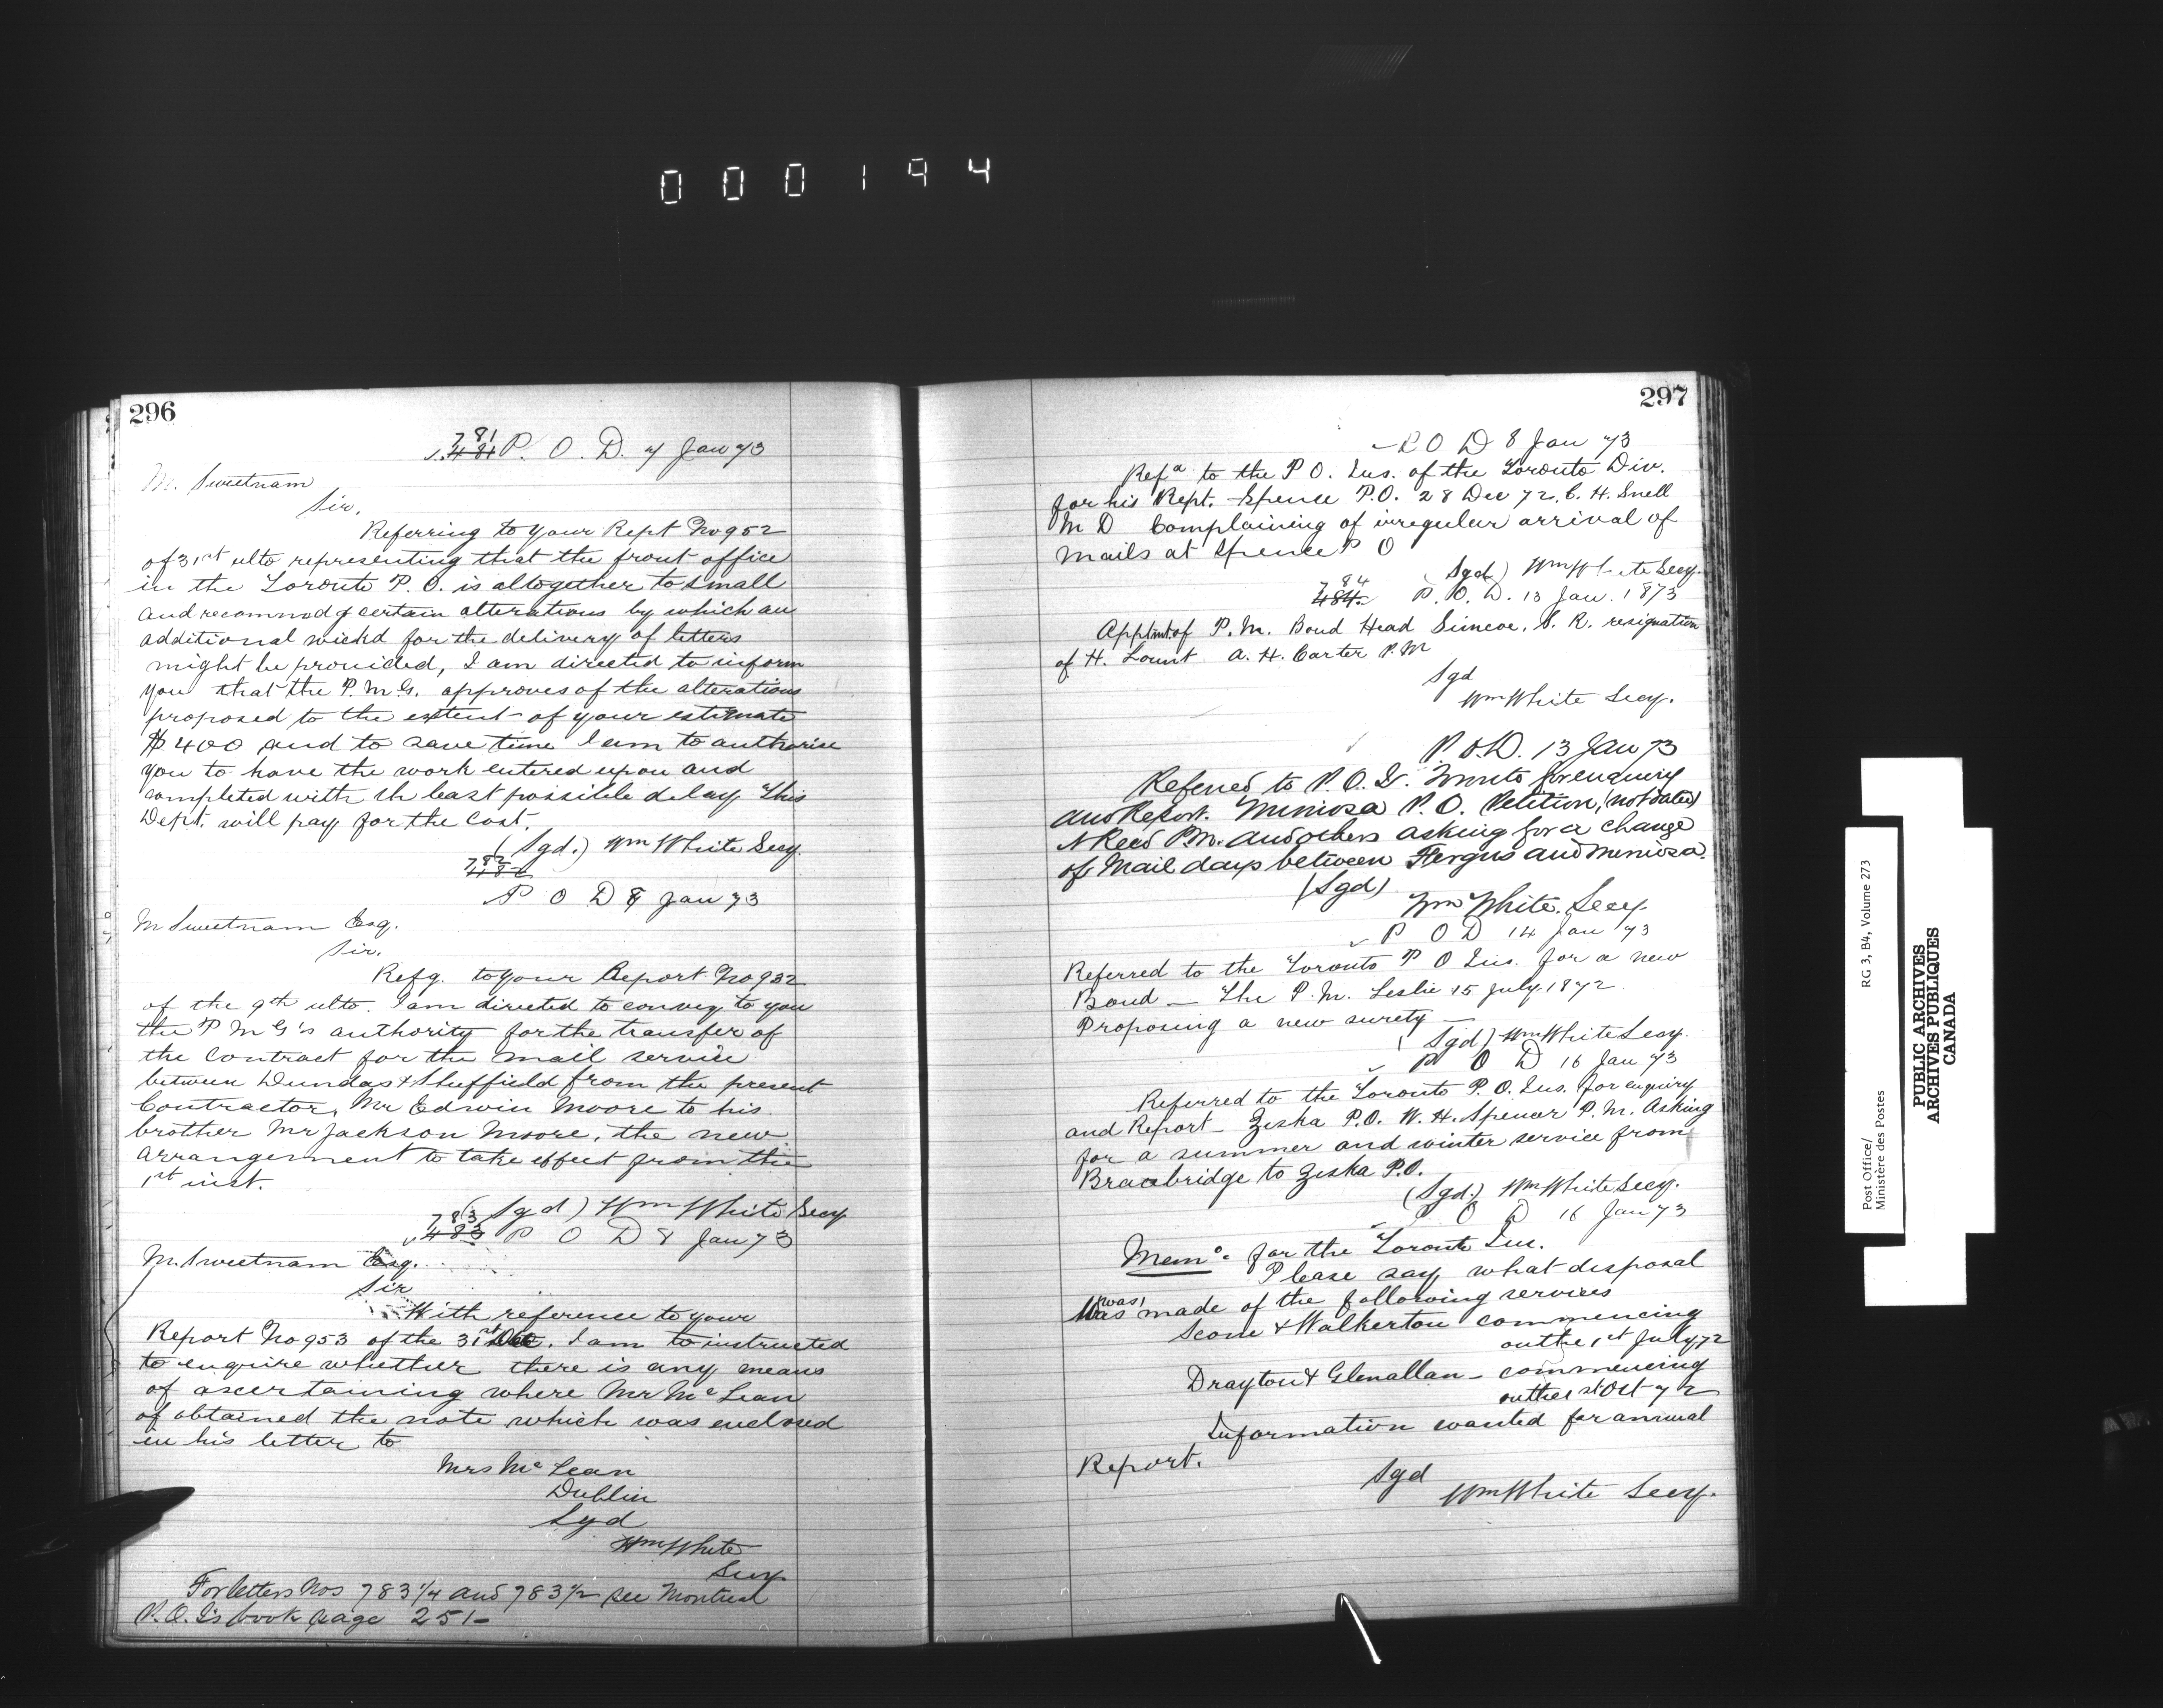 000194
296
781
481 P. O. D. 7 Jan 73
M. Sweetnam
Sir,
Referring to your Rept No 952
of 31st ulto representing that the front office
in the Toronto P. O. is altogether to small
and recommdg certain alterations by which an
additional wickd for the delivery of letters
might be provided, I am directed to inform
you that the P. M. G. approves of the alterations
proposed to the extent of your estimate
$400 and to save time I am to authorise
you to have the work entered upon and
completed with the least possible delay This
Dept. will pay for the Cost.
(Sgd.) Wm White Secy.
782
482
P O D 8 Jan 73
M Sweetnam Esq.
Sir.
Refg. to your Report No 932
of the 9th ulto. I am directed to convey to you
the P M G's authority for the transfer of
the Contract for the mail service
between Dundas & Sheffield from the present
Contractor, Mr Edwin Moore to his
brother Mr Jackson Moore, the new
arrangement to take effect from the
1st inst.
(Sgd) Wm White Secy
783
483 P O D 8 Jan 73
M. Sweetnam Esq.
Sir
With reference to your
Report No 953 of the 31st Dec. I am to instructed
to enquire whether there is any means
of ascertaining where Mr McLean
of obtained the note which was enclosed
in his letter to
Mrs McLean
Dublin
Sgd
Wm White
Secy
For letters Nos 783 1/4 and 783 1/2 see Montreal
P. O. I's book page 251-
297
P O D 8 Jan 73
Refd to the P O. Ins. of the Toronto Div.
for his Rept. Spence P.O. 28 Dec 72, C. H. Snell
M D Complaining of irregular arrival of
mails at Spence P O
Sgd) Wm White Secy.
784
484 P. O. D. 13 Jan. 1873
Applmt. of P. M. Bond Head Simcoe, S. R. resignation
of H. Lount A. H. Carter P. M
Sgd
Wm White Secy.
P. O. D. 13 Jan 73
Referred to P. O. I. Toronto for enquiry
and Report. Mimosa P. O. Petition, (not dated)
Reed P.M. and others asking for a change
of Mail days between Fergus and Mimosa.
(Sgd)
Wm White. Secy.
P O D 14 Jan 73
Referred to the Toronto P O Ins. for a new
Bond — The P. M. Leslie 15 July 1872
Proposing a new surety —
(Sgd) Wm White Secy.
P O D 16 Jan 73
Referred to the Toronto P. O. Ins. for enquiry
and Report — Ziska P.O. W. H. Spencer P. M. Asking
for a summer and winter service from
Bracebridge to Ziska P.O.
(Sgd.) Wm White Secy.
P O D 16 Jan 73
Memo. for the Toronto Ins.
Please say what disposal
was
Was made of the following services
Scone & Walkerton commencing
on the 1st July 72
Drayton & Glenallan — commencing
on the 1st Oct 72
Information wanted for annual
Report.
Sgd
Wm White Secy.
Post Office/
Ministère des Postes
RG 3, B4, Volume 273
PUBLIC ARCHIVES
ARCHIVES PUBLIQUES
CANADA